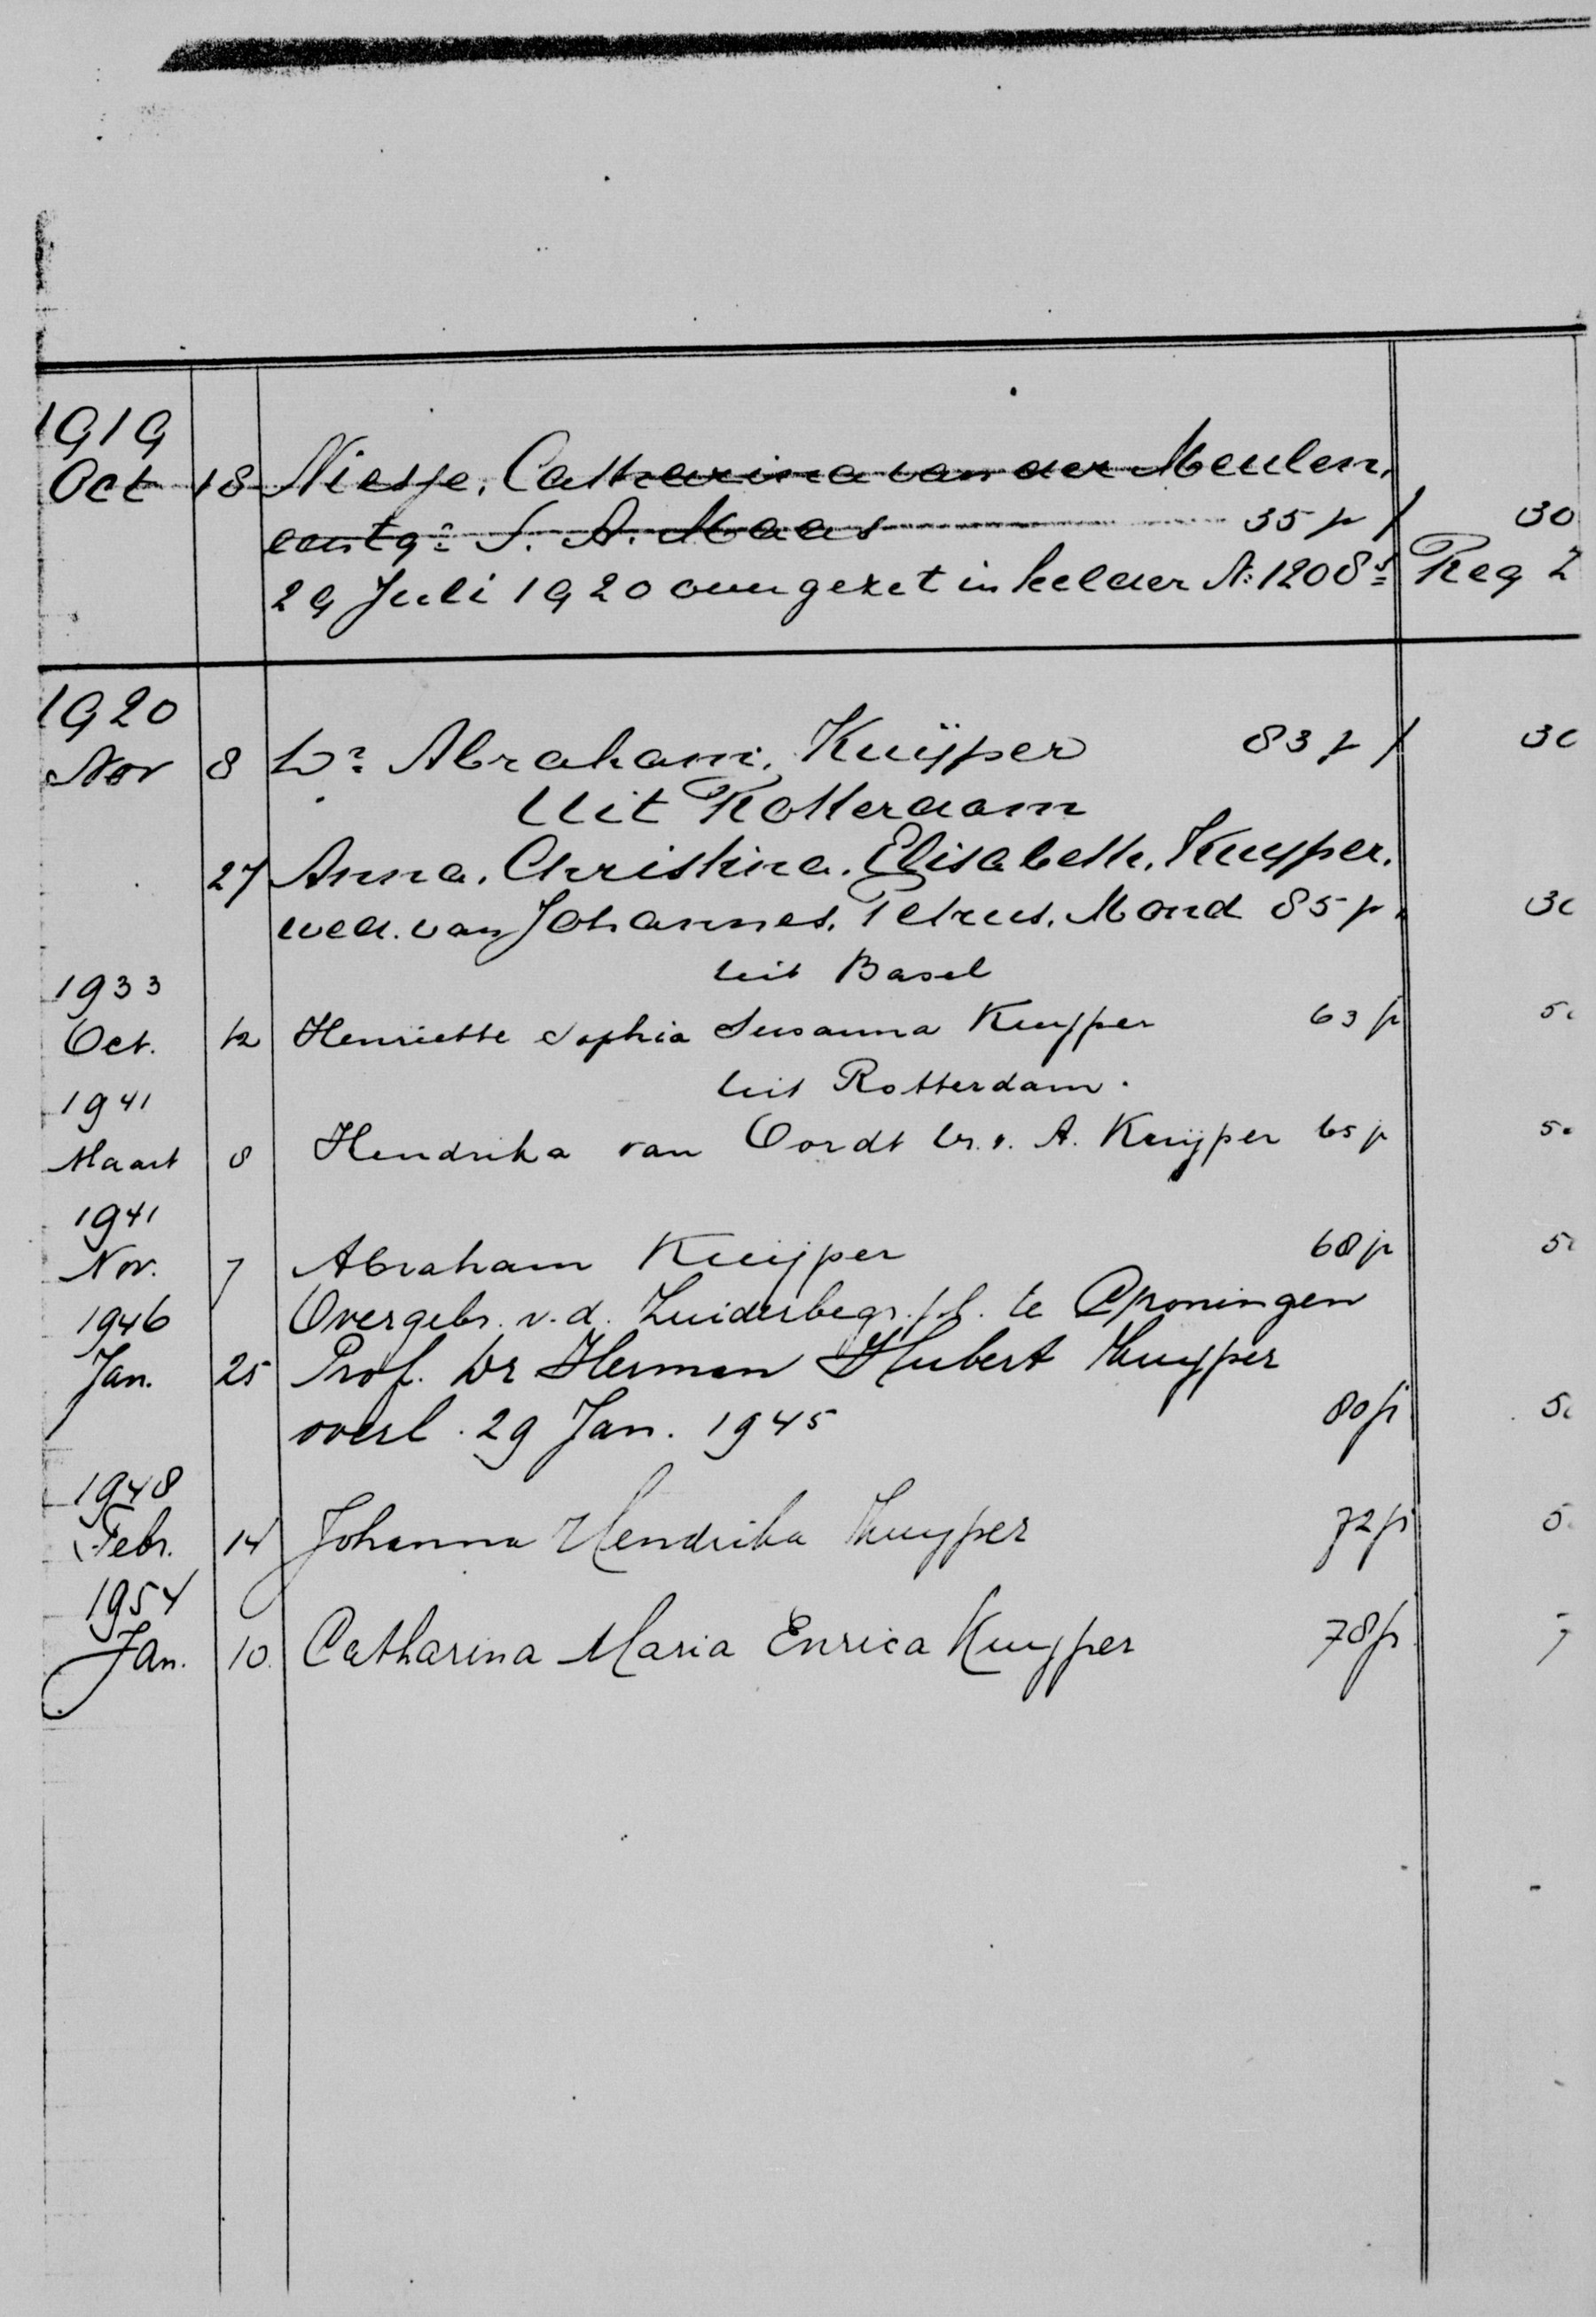 1919
Oct 18 Niesje, Catharina van der Meulen,
echtg: S. A. Maas 35 j 30
29 Juli 1920 overgezet in kelder No: 1208 Reg 2
1920
Nov 8 Dr Abraham, Kuijper 83 j 30
Uit Rotterdam
27 Anna, Christina, Elisabeth, Kuijper,
wed. van Johannes, Petrus, Mond 85 j. 30
uit Basel
1933
Oct. 12 Henriette Sophia Susanna Kuijper 63 j
uit Rotterdam.
1941
Maart 8 Hendrika van Oordt er. v. A. Kuijper 65 j 50
1941
Nov. 7 Abraham Kuijper 68 j
1946 Overgebr. v. d. Zuiderbegr. pl. te Groningen
Jan. 25 Prof. Dr Herman Hubert Kuyper
overl. 29 Jan. 1945 80 j
1948
Febr. 14 Johanna Hendrika Kuyper 72 j
1954
Jan. 10. Catharina Maria Enrica Kuyper 78 j